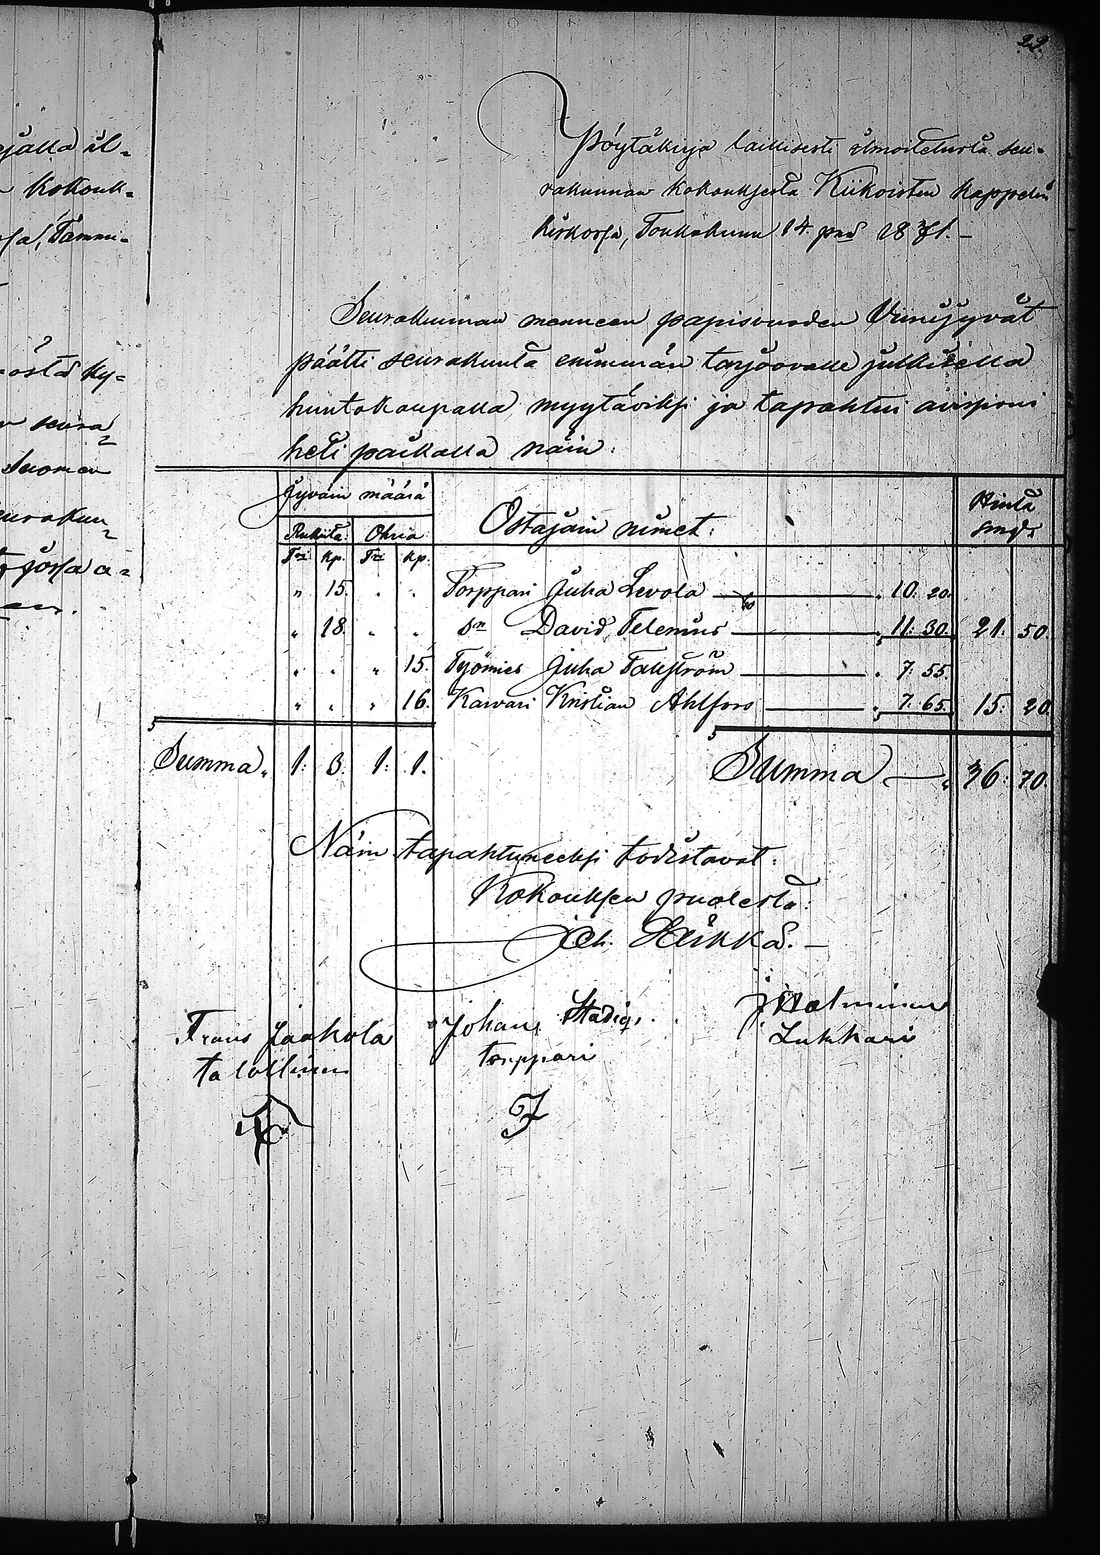 29.
ejällä il-
kokouk-
ssa, Tammi-
östä ky-
seura
Suomen
seurakun
jossa a-
Pöytäkirja laillisesti ilmoitetusta seu-
rakunnan kokouksesta Kiikoisten kappelin
kirkossa, Toukokuun 14. pnä 1871.-
Seurakunnan menneen papisvuoden Viinijyvät
päätti seurakunta enimmän tarjoovalle julkisella
huutokaupalla myytäviksi ja tapahtui
heti paikalla näin:
Jyväin määrä
Ostajain nimet:
Hinta
Smk
Rukiita. Ohria
Tri kp. Tri kp.
" 15. . . Torppari Juha Levola — . 10: 20.
" 18. . . Dn David Telenius — " 11: 30. 21: 50.
" . " 15. Työmies Juha Takström — . 7: 55.
" . " 16. Karvari Kristian Ahlfors — " 7: 65. 15: 20.
Summa " 1: 3. 1: 1. Summa — " 36: 70.
Näin tapahtuneeksi todistavat:
Kokouksen puolesta:
Heikkä.-
Frans Jaakola Johan Stadig. J Salminen
talollinen torppari Lukkari